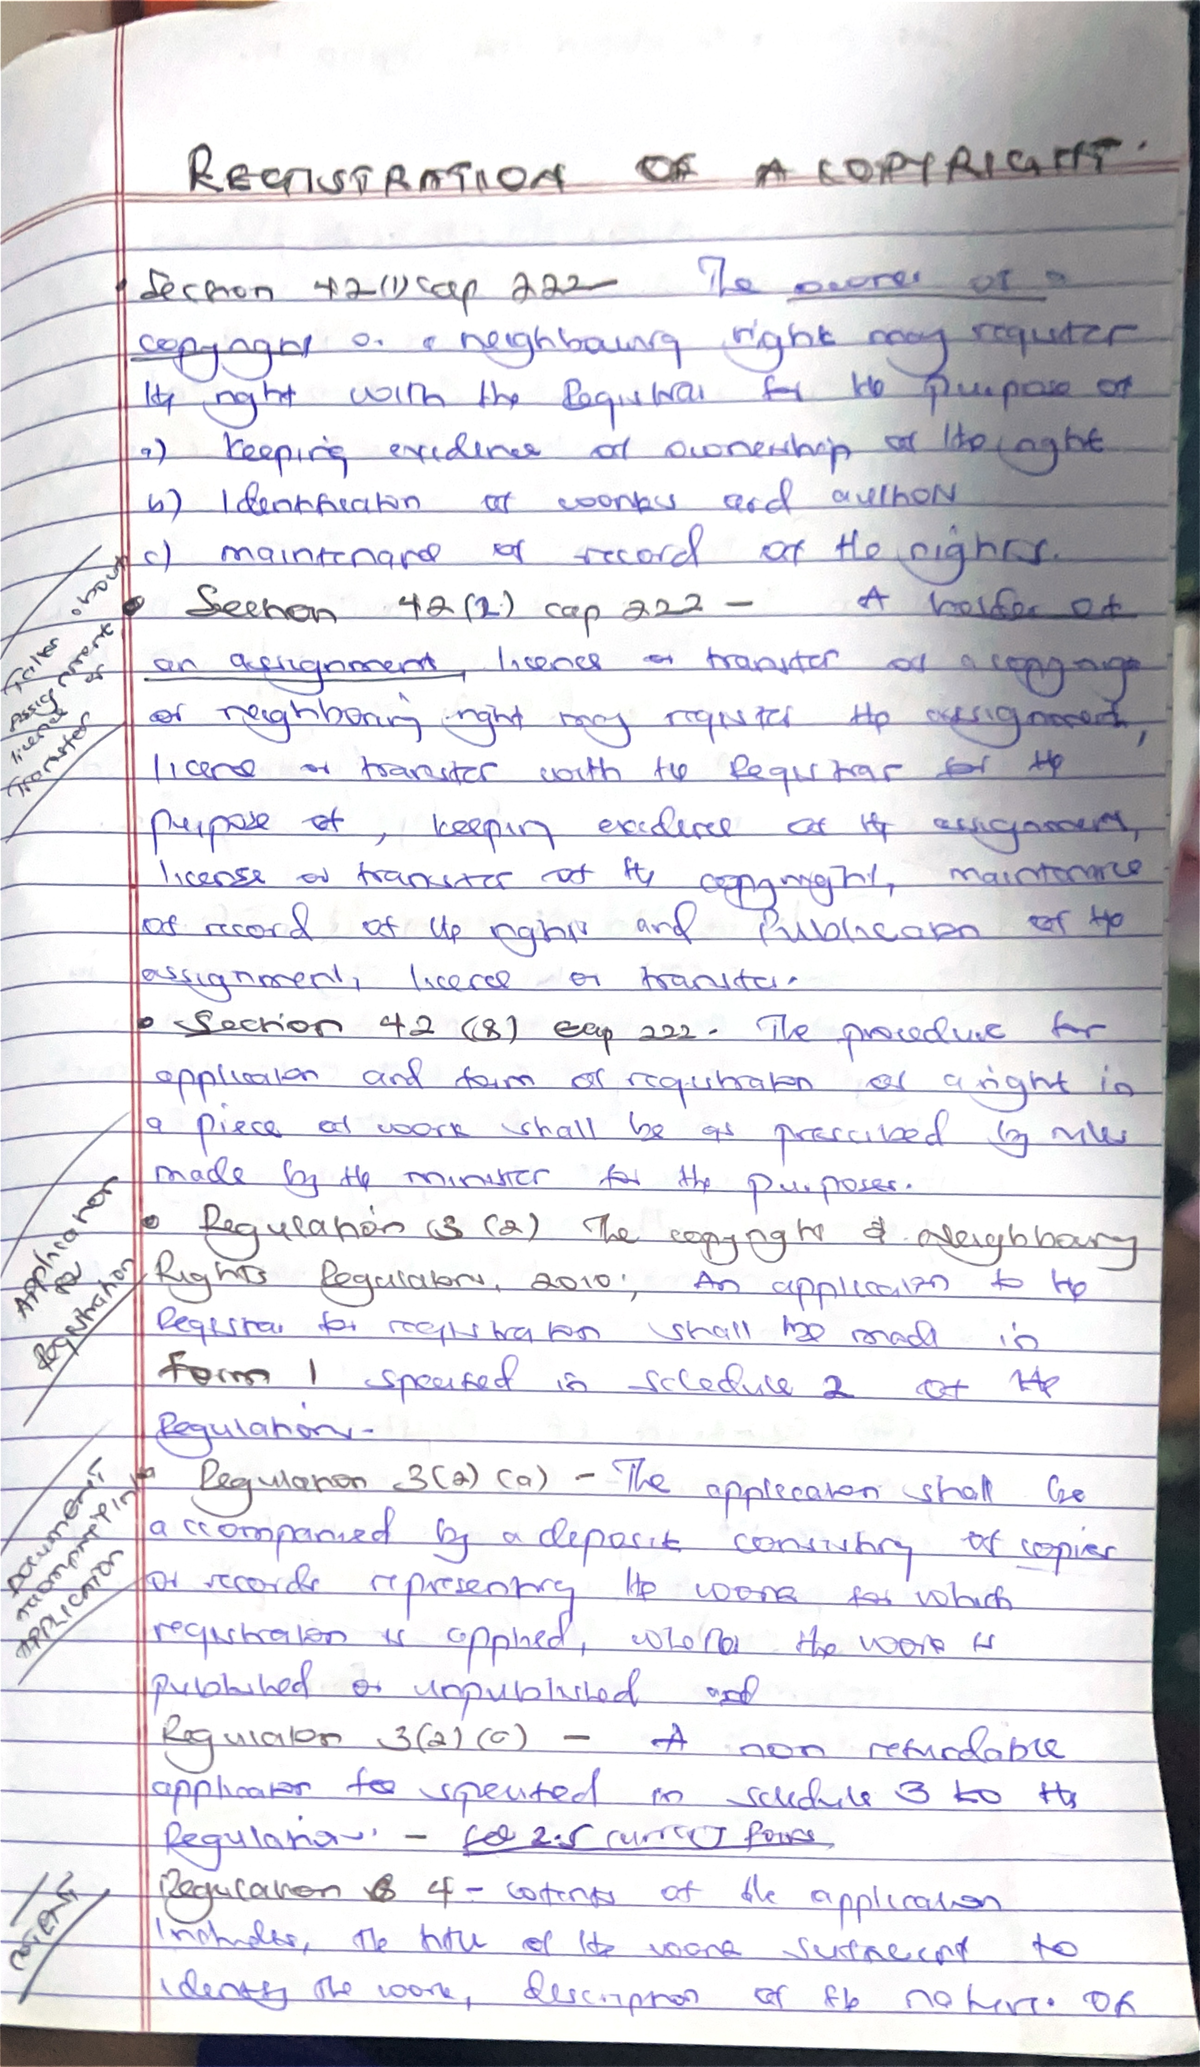 REGISTRATION OF A COPYRIGHT.
Section 42(1) cap 222 - The owner of a
copyright or a neighbouring right may register
the right with the Registrar for the purpose of
a) keeping evidence of ownership of the right
b) Identification of works and authors
c) maintenance of record of the rights.
Section 42(2) cap 222 - A holder of
an assignment, licence or transfer of a copyright
or neighbouring right may register the assignment,
licence or transfer with the Registrar for the
purpose of, keeping evidence of the assignment,
license or transfer of the copyright, maintenance
of record of the rights and Publication of the
assignment, licence or transfer.
about
assignment or
licence
Transfer
Section 42 (8) cap 222 - The procedure for
application and form of registration of a right in
a piece of work shall be as prescribed by rules
made by the minister for the purposes.
Regulation 3 (2) The copyright & Neighbouring
Rights Regulations, 2010; An application to the
Registrar for registration shall be made in
Form 1 specified in schedule 2 of the
Regulations -
APPlication
for
Registration
Regulation 3(2) (a) - The application shall be
accompanied by a deposit consisting of copies
or records representing the work for which
registration is applied, whether the work is
published or unpublished and
Regulation 3(2) (c) - A non refundable
application fee specified in schedule 3 to the
Regulations. - currency points
DOCUMENTS
ACCOMPANYING
APPLICATION
Regulation 4 - contents of the application
includes, the title of the work sufficient to
identify the work, description of the nature or
CONTENTS